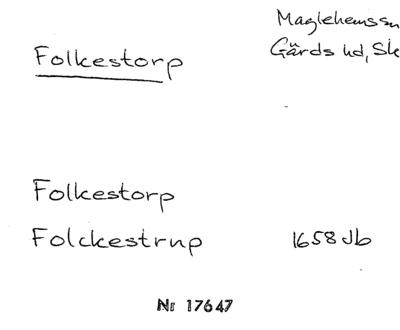 Maglehemssn
Folkestorp
Gärds hd, Sk
Folkestorp
Folckestrup 1658 Jb
Nr 17647